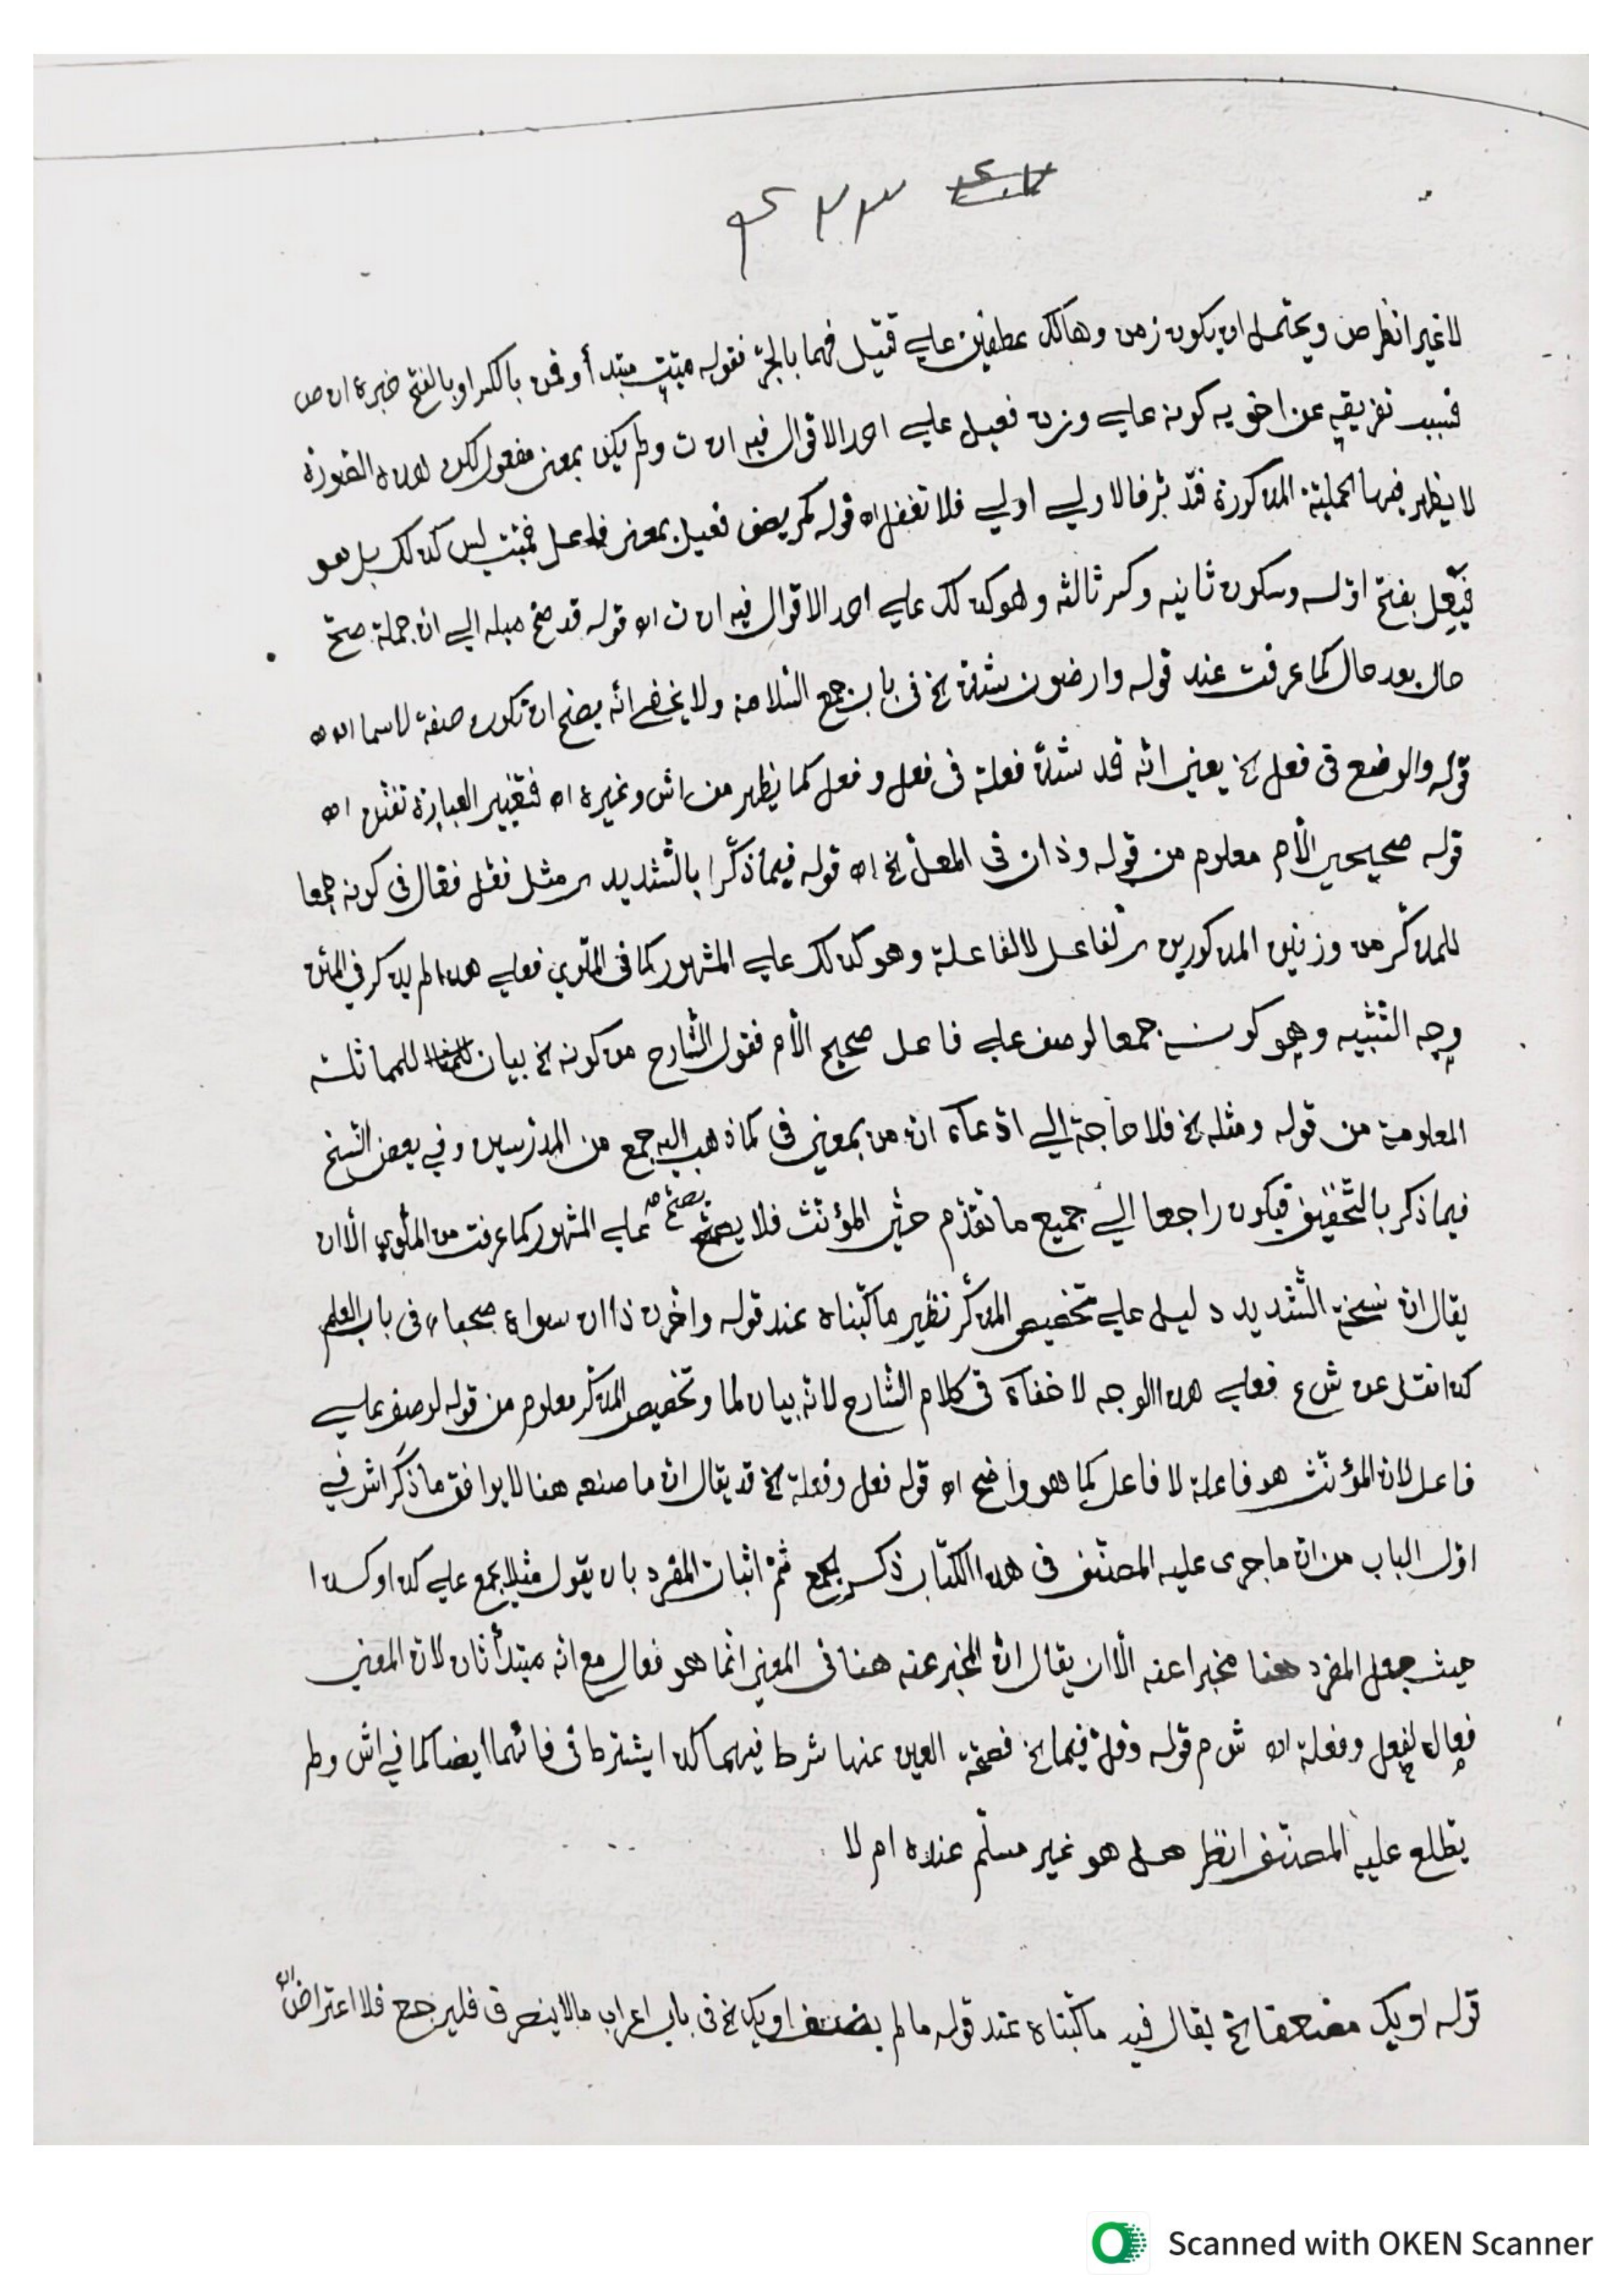 لا غير انظر ص ويحتمل ان يكون زمن وهالك عطفين على قتيل فهما بالجرّ فقوله ميّت مبتدأ وقمن بالكسر او بالفتح خبره اه ص
فسبب تفريقه عن اخويه كونه على وزن فعيل على احد الاقوال فيه اه ت ولم يكن بمعنى مفعول لكن هذه الصورة
لا يظهر فيها الحملية المذكورة فتدبّر فالاولى اولى فلا تغفل اه قوله كمريض فعيل بمعنى فاعل فميّت ليس كذلك بل هو
فيعِل بفتح اوّله وسكون ثانيه وكسر ثالثه وهو كذلك على احد الاقوال فيه اه ت اه قوله قد صحّ ميله الى ان جملة صحّ
حال بعد حال كما عرفت عند قوله وارضون شذّ الخ فى باب جمع السّلامة ولا يخفى انّه يصحّ ان تكون صفة لاسما اه
قوله والوضع فى فعل الخ يعنى انّه قد شذّ فعلة فى فعل وفعل كما يظهر من اش وغيره اه فتغيير العبارة تفنّن اه
قوله صحيحي الّام معلوم من قوله وذان فى المعلّ الخ اه قوله فيما ذكّرا بالتّشديد مثل نقل فقال فى كونه جمعا
للمذكّر من وزنين المذكورين لفاعل لا لفاعلة وهو كذلك على المشهور كما فى الملّوي فعلى هذا لم يذكر في المتن
وجه التّشبيه وهو كونه جمعا لوصف على فاعل صحيح الّام فقول الشّارح من كونه الخ بيان للمماثلة
المعلومة من قوله ومثله الخ فلا حاجة الى ادّعاء ان من بمعنى فى كما ذهب اليه جمع من المدرّسين وفي بعض النّسخ
فيما ذكر بالتّخفيف فيكون راجعا الى جميع ما تقدّم حتّى المؤنّث فلا يصحّ على المشهور كما عرفت من الملّوي الّا ان
يقال انّ نسخة التّشديد دليل على تخصيص المذكّر نظير ما كتبناه عند قوله واخّرن ذا ان سواه صحبا فى باب العلم
كذا نقل عن ش ع فعلى هذا الوجه لا خفاء فى كلام الشّارح لانّه بيان لما وتخصيص المذكّر معلوم من قوله لوصف على
فاعل لانّ المؤنّث هو فاعلة لا فاعل كما هو واضح اه قوله فعل وفعلة الخ قد يقال انّ ما صنعه هنا لا يوافق ما ذكر اش في
اوّل الباب من انّ ما جرى عليه المصنّف فى هذا الكتاب ذكر الجمع ثمّ اثبات المفرد بان يقول مثلا يجمع على كذا وكذا
حيث جعل المفرد هنا مخبرا عنه الّا ان يقال انّ المخبر عنه هنا فى المعنى انّما هو فعال مع انّه مبتدأ ثان لانّ المعنى
فعال لفعل وفعلة اه ش م قوله وقلّ فيما الخ فصحّة العين عنها شرط فيهما كذا يشترط فى فائهما ايضا كما في اش ولم
يطلع عليه المصنّف انظر هل هو غير مسلّم عنده ام لا
قوله او يك مضعفا الخ يقال فيه ما كتبناه عند قوله ما لم يضف او يك الخ فى باب اعراب ما لا ينصرف فليرجع فلا اعتراض اه
Scanned with OKEN Scanner